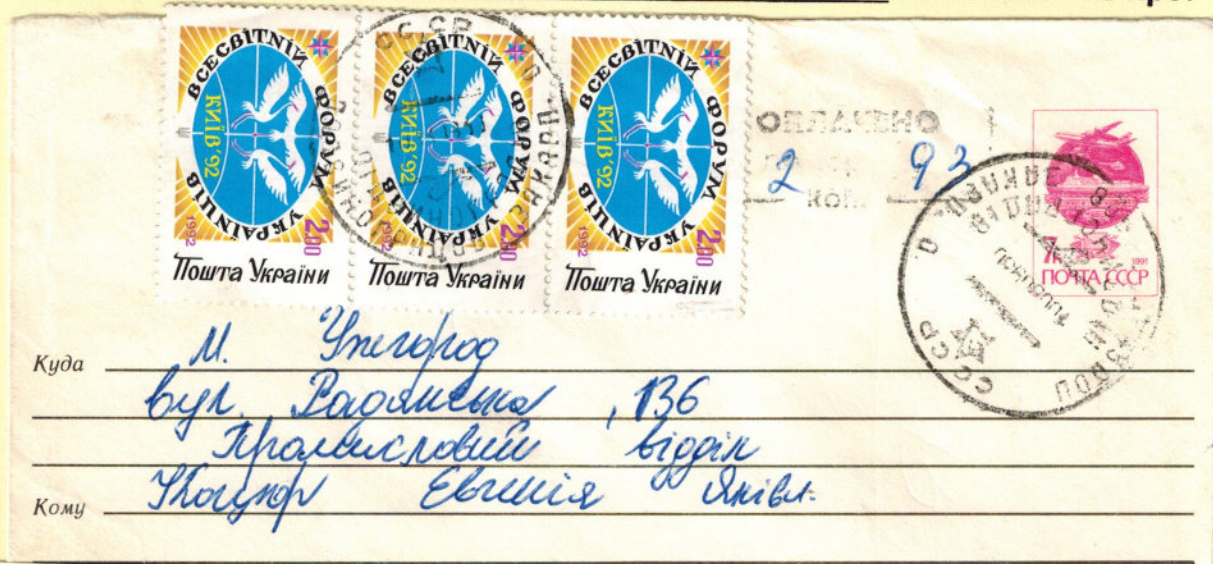 ВСЕСВІТНІЙ ФОРУМ УКРАЇНЦІВ
КИЇВ'92
1992
2.00
Пошта України
ВСЕСВІТНІЙ ФОРУМ УКРАЇНЦІВ
КИЇВ'92
1992
2.00
Пошта України
ВСЕСВІТНІЙ ФОРУМ УКРАЇНЦІВ
КИЇВ'92
1992
2.00
Пошта України
ОПЛАЧЕНО
2 93
коп.
7к
1991
ПОЧТА СССР
СССР
Куда м. Ужгород
вул. Радянська, 136
Промисловий відділ
Кому Євгенія Яківл.